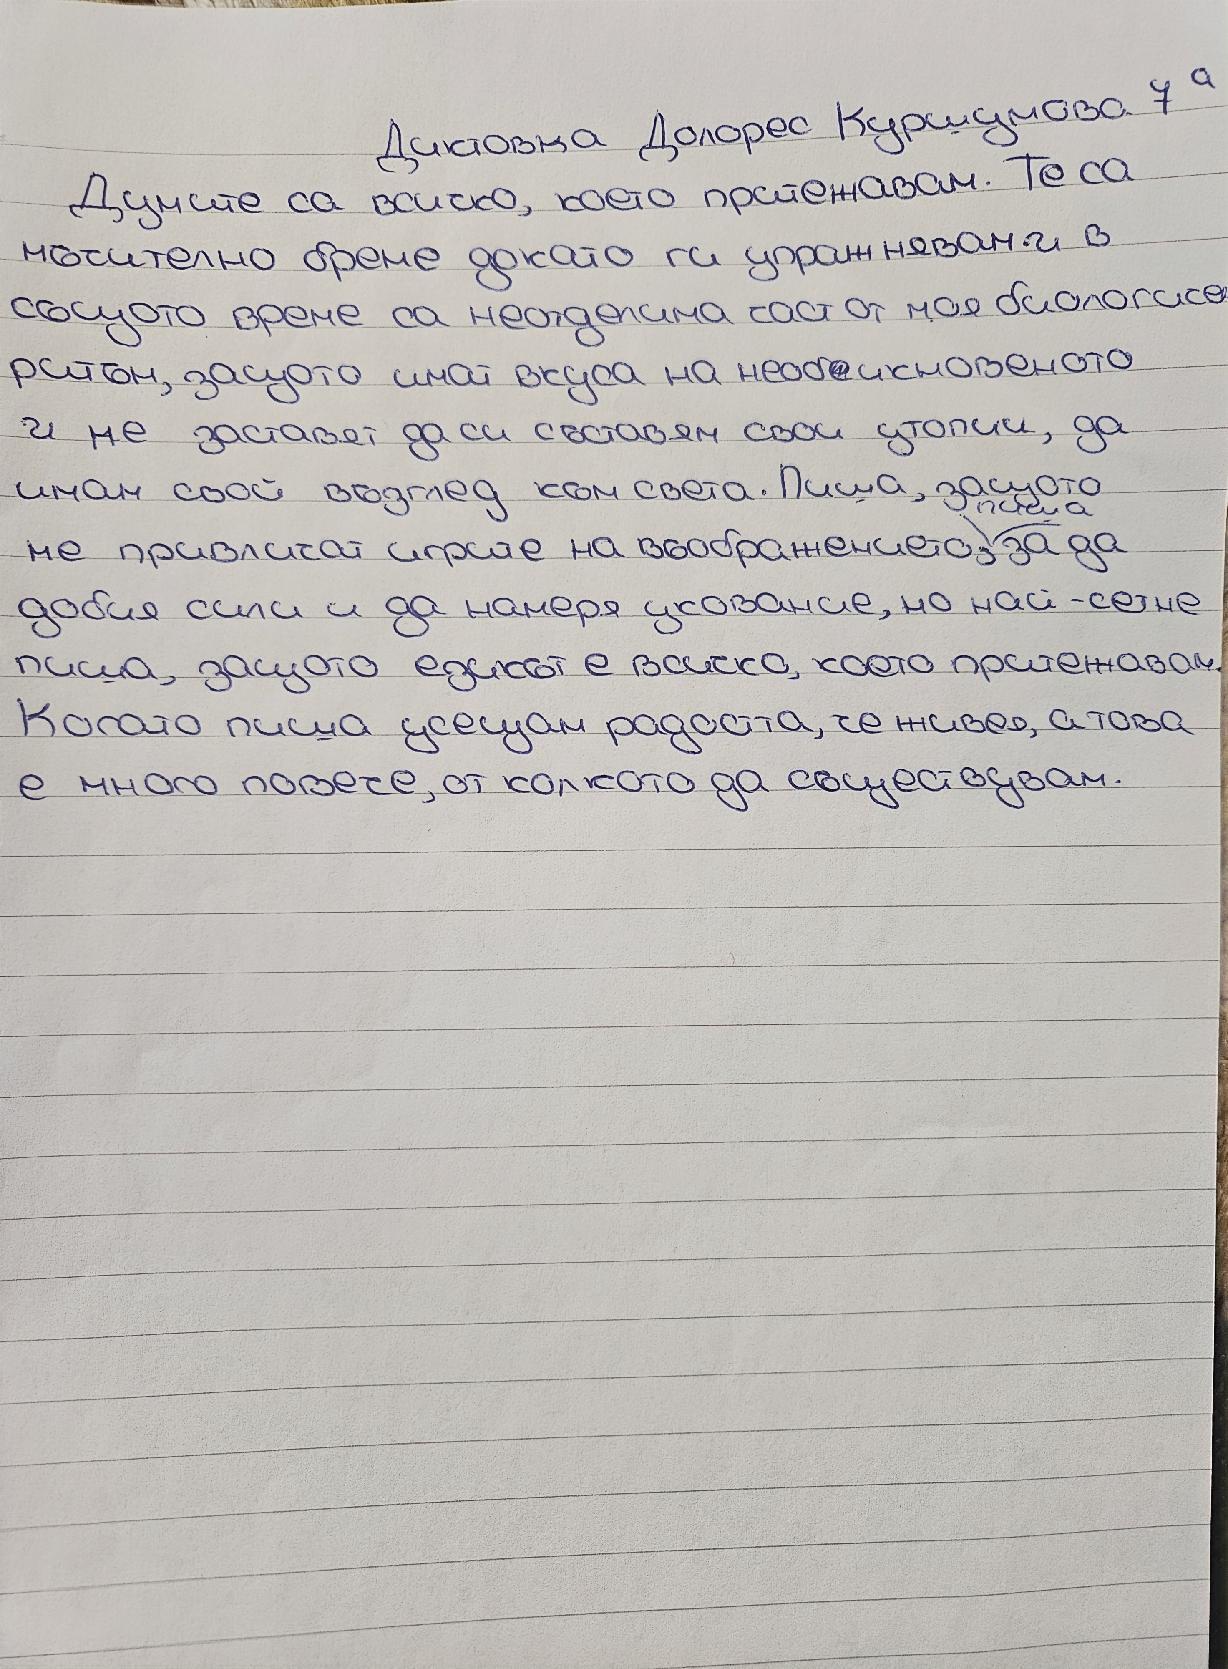 Диктовка Долорес Куршумова 7а
Думите са всичко, което притежавам. Те са
мъчително бреме докато ги упражнявам и в
същото време са неотделима част от моя биологиче
ритъм, защото имат вкуса на необикновеното
и ме заставят да си съставям свои утопии, да
имам свой възглед към света. Пиша, защото
ме привличат игрите на въображението, пиша за да
добия сили и да намеря укование, но най-сетне
пиша, защото езикът е всичко, което притежавам.
Когато пиша усещам радостта, че живея, а това
е много повече, от колкото да съществувам.